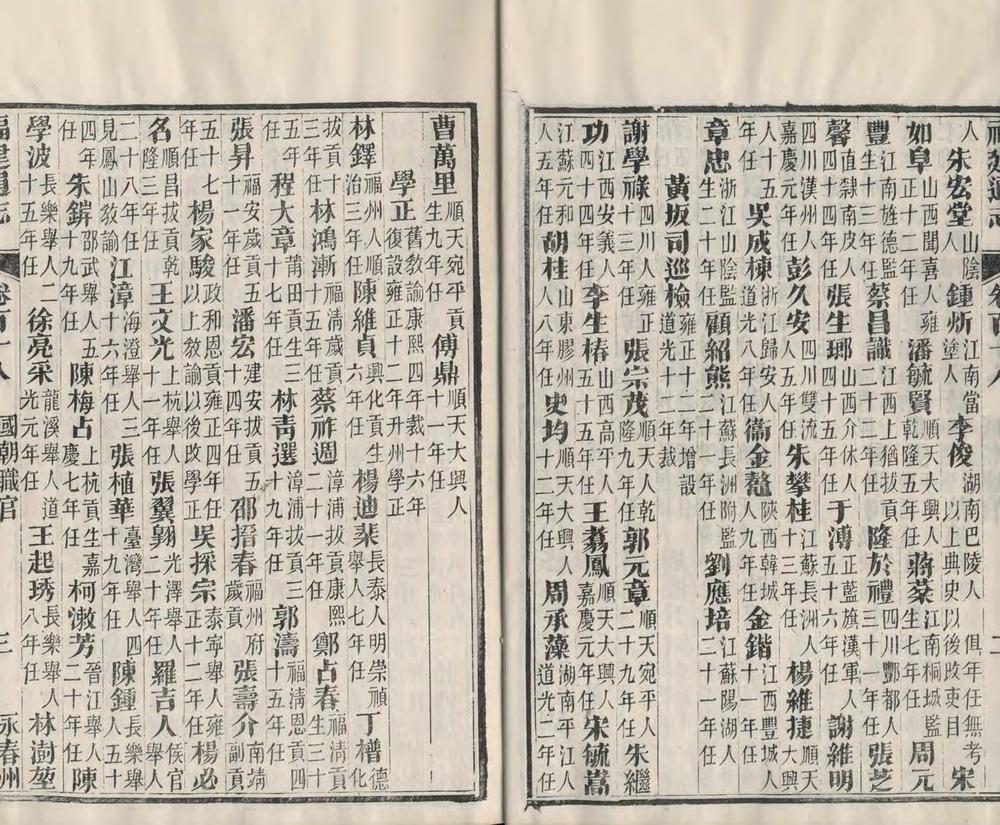 人 朱宏堂山陰人 鍾炘江南當塗人 李俊湖南巴陵人 以上典史以後改吏目 俱年任無考 宋
如阜山西聞喜人雍正十二年任 潘毓賢順天大興人乾隆五年任 蔣菜江南桐城監生七年任 周元
豐江南旌德監生十三年任 蔡昌識江西上猶拔貢二十二年任 隆於禮四川酆都人三十一年任 張芝
馨直隸南皮人四十四年任 張生瑯山西介休人四十五年任 于溥正藍旗漢軍人五十六年任 謝維明
四川漢州人嘉慶元年任 彭久安四川雙流人五年任 朱攀桂江蘇長洲人十三年任 楊維捷順天大興
人十五年任 吳成棟浙江歸安人道光八年任 衞金鼇陝西韓城人九年任 金鍇江西豐城人十一年任
章忠浙江山陰監生二十年任 顧紹熊江蘇長洲附監二十一年任 劉應培江蘇陽湖人二十一年任
黃坂司巡檢雍正十二年增設道光十二年裁
謝學祿四川人雍正十三年任 張宗茂順天人乾隆九年任 郭元章順天宛平人二十九年任 朱繼
功江西安義人四十四年任 李生椿山西高平人五十五年任 王翥鳳順天大興人嘉慶元年任 宋毓嵩
江蘇元和人五年任 胡桂山東膠州人八年任 史均順天大興人十二年任 周承藻湖南平江人道光二年任
曹萬里順天宛平貢生九年任 傅鼎順天大興人十一年任
學正舊教諭康熙四年裁十六年復設雍正十二年升州學正
林鐸福州人順治三年任 陳維貞興化貢生六年任 楊迪棐長泰人明崇禎舉人七年任 丁櫓德化
拔貢十三年任 林鴻漸福淸歲貢十五年任 蔡祚週漳浦拔貢康熙二十一年任 鄭占春福淸貢生三十
五年任 程大章莆田貢生三十七年任 林靑選漳浦拔貢三十九年任 郭濤福淸恩貢四十五年任
張昇福安歲貢五十一年任 潘宏建安拔貢五十四年任 邵搢春福州府歲貢 張壽介南靖副貢
五十七年任 楊家駿政和恩貢雍正四年任以上敘教諭以後改學正 吳探宗泰寧舉人雍正十二年任 楊必
名順昌拔貢乾隆三年任 王文光上杭舉人十一年任 張翼翺光澤舉人二十年任 羅吉人侯官舉人
二十八年任見鳳山敎諭 江漳海澄舉人三十六年任 張植華臺灣舉人四十九年任 陳鍾長樂舉人五十
四年任 朱鏘邵武舉人五十九年任 陳梅占上杭貢生嘉慶七年任 柯漱芳晉江舉人二十年任 陳
學波長樂舉人二十五年任 徐亮采龍溪舉人道光元年任 王起琇長樂舉人八年任 林澍堃
福建通志 卷百十八 國朝職官 三 永春州